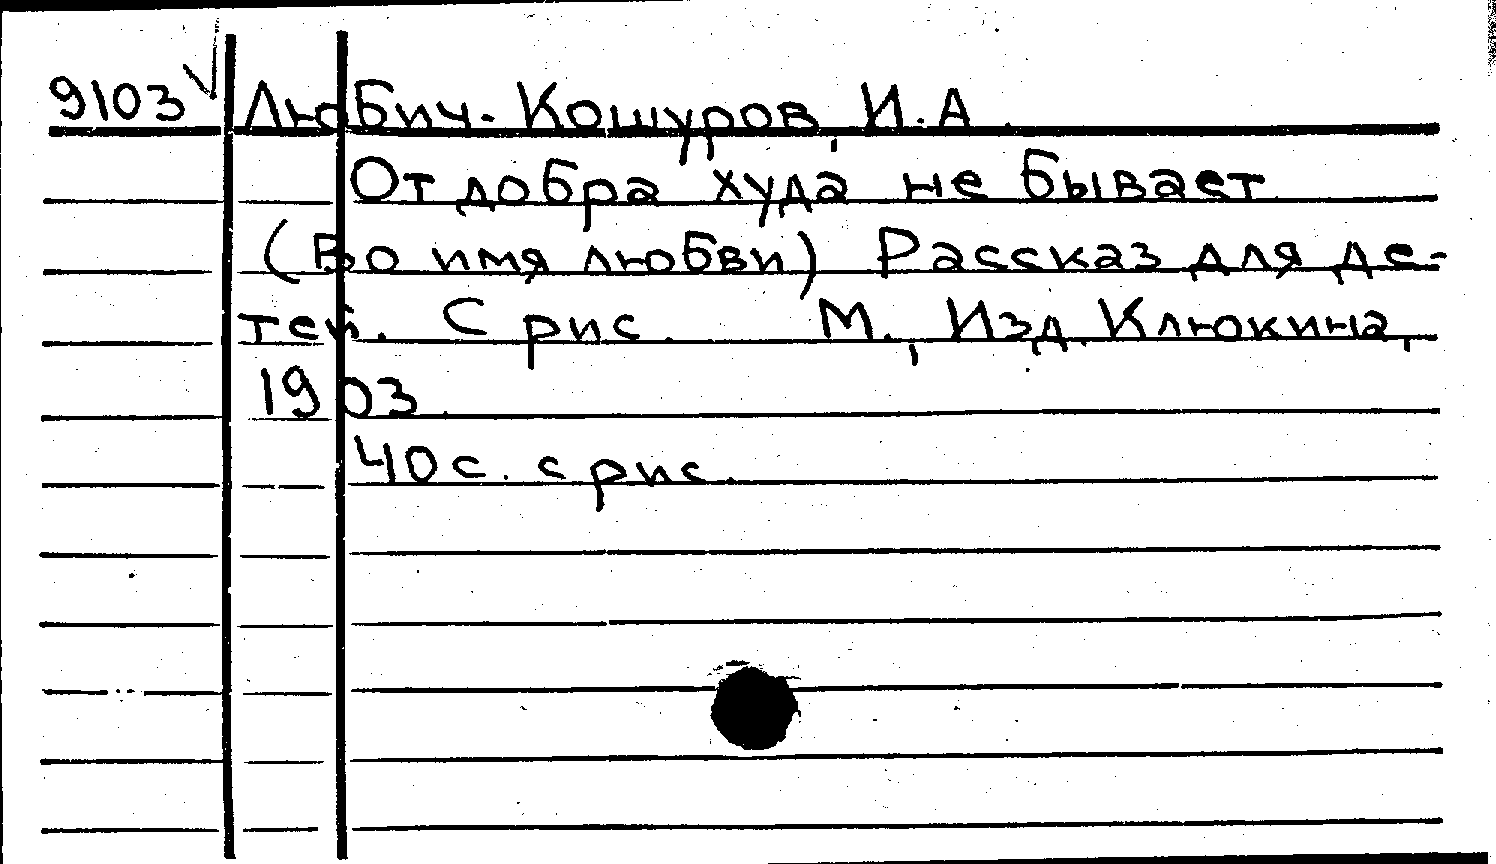 9103 Любич-Кошуров, И.А.
От добра худа не бывает
(Во имя любви) Рассказ для де-
тей. С рис. М., Изд. Клюкина,
1903.
40с. с рис.